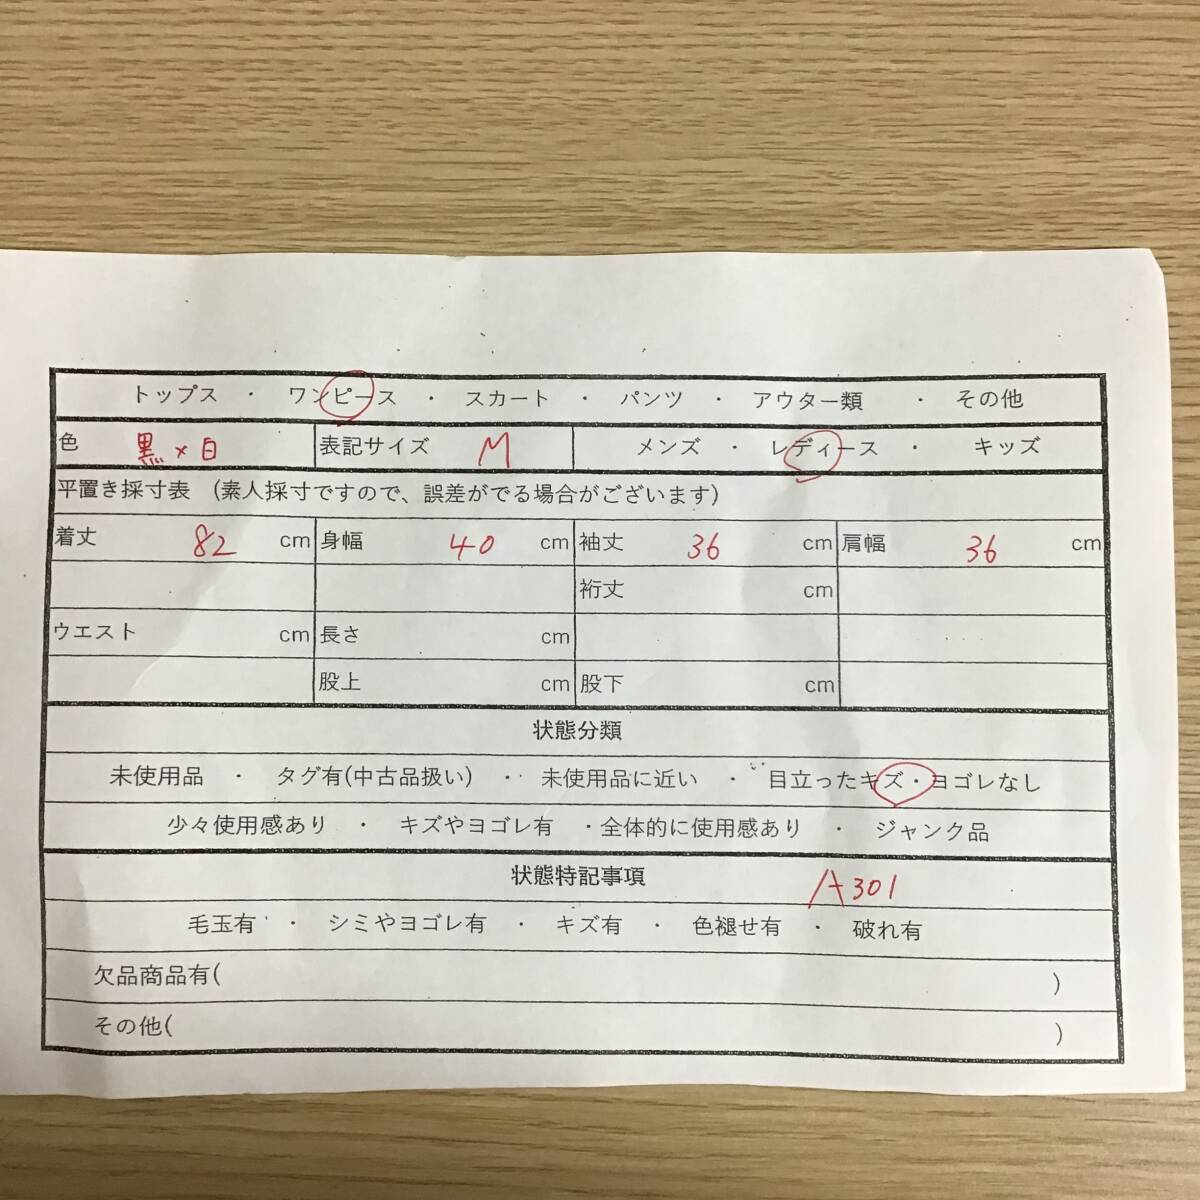 トップス ・ ワンピース ・ スカート ・ パンツ ・ アウター類 ・ その他
色 黒×白 表記サイズ M メンズ ・ レディース ・ キッズ
平置き採寸表 (素人採寸ですので、誤差がでる場合がございます)
着丈 82 cm 身幅 40 cm 袖丈 36 cm 肩幅 36 cm
裄丈 cm
ウエスト cm 長さ cm
股上 cm 股下 cm
状態分類
未使用品 ・ タグ有(中古品扱い) ・ 未使用品に近い ・ 目立ったキズ・ヨゴレなし
少々使用感あり ・ キズやヨゴレ有 ・全体的に使用感あり ・ ジャンク品
状態特記事項 A301
毛玉有 ・ シミやヨゴレ有 ・ キズ有 ・ 色褪せ有 ・ 破れ有
欠品商品有( )
その他( )